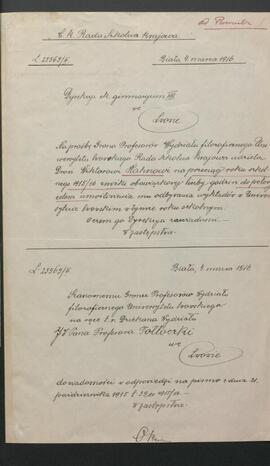 C. K. Rada Szkolna krajowa
L 23363/4.
Biała, 9. marca 1916
Dyrekcya c.k. gimnazyum VIII
we
Lwowie
Na prośbę Grona Profesorów Wydziału filozoficznego Uni-
wersytetu lwowskiego Rada Szkolna krajowa udziela
Drowi Wiktorowi na przeciąg roku szkol-
nego 1915/16 zniżki obowiązkowej liczby godzin do połowy
celem umożliwienia mu odbywania wykładów w Uniwer-
sytecie lwowskim w bieżącym roku szkolnym.
O czem go Dyrekcya zawiadomi.
W zastępstwie
L. 23363/4
Biała, 9. marca 1916
Szanownemu Gronu Profesorów Wydziału
filozoficznego Uniwersytetu lwowskiego
na ręce t. r. Dziekana Wydziału
JWPana Profesora Tołłoczki
we
Lwowie
do wiadomości w odpowiedzi na pismo z dnia 21.
października 1915 l.
W zastępstwie